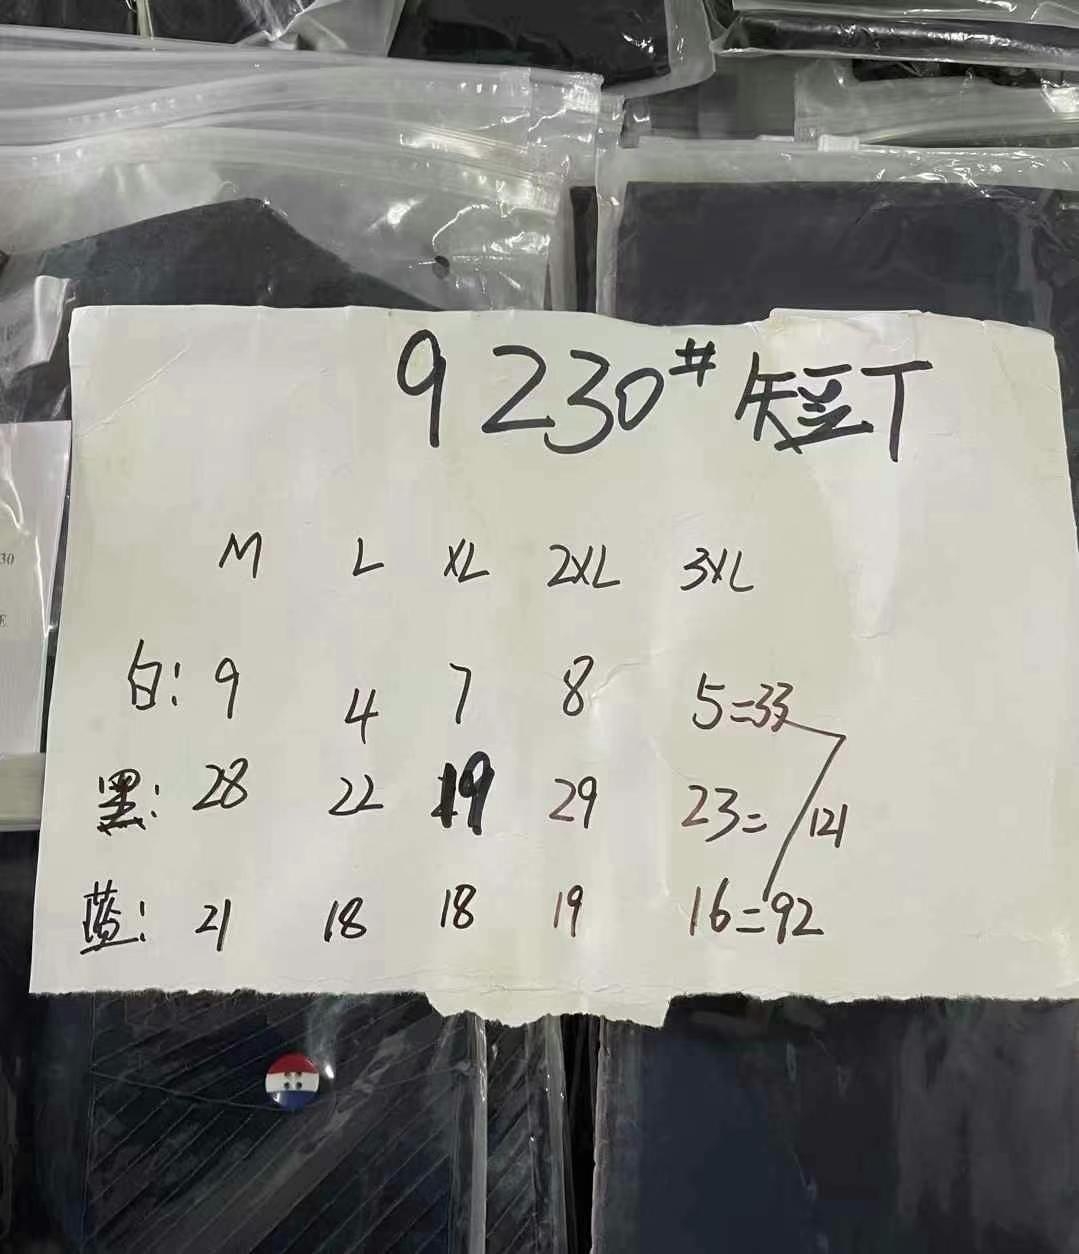 9230# 短T
M L XL 2XL 3XL
白: 9 4 7 8 5=33
黑: 28 22 19 29 23= 121
蓝: 21 18 18 19 16=92
30
E